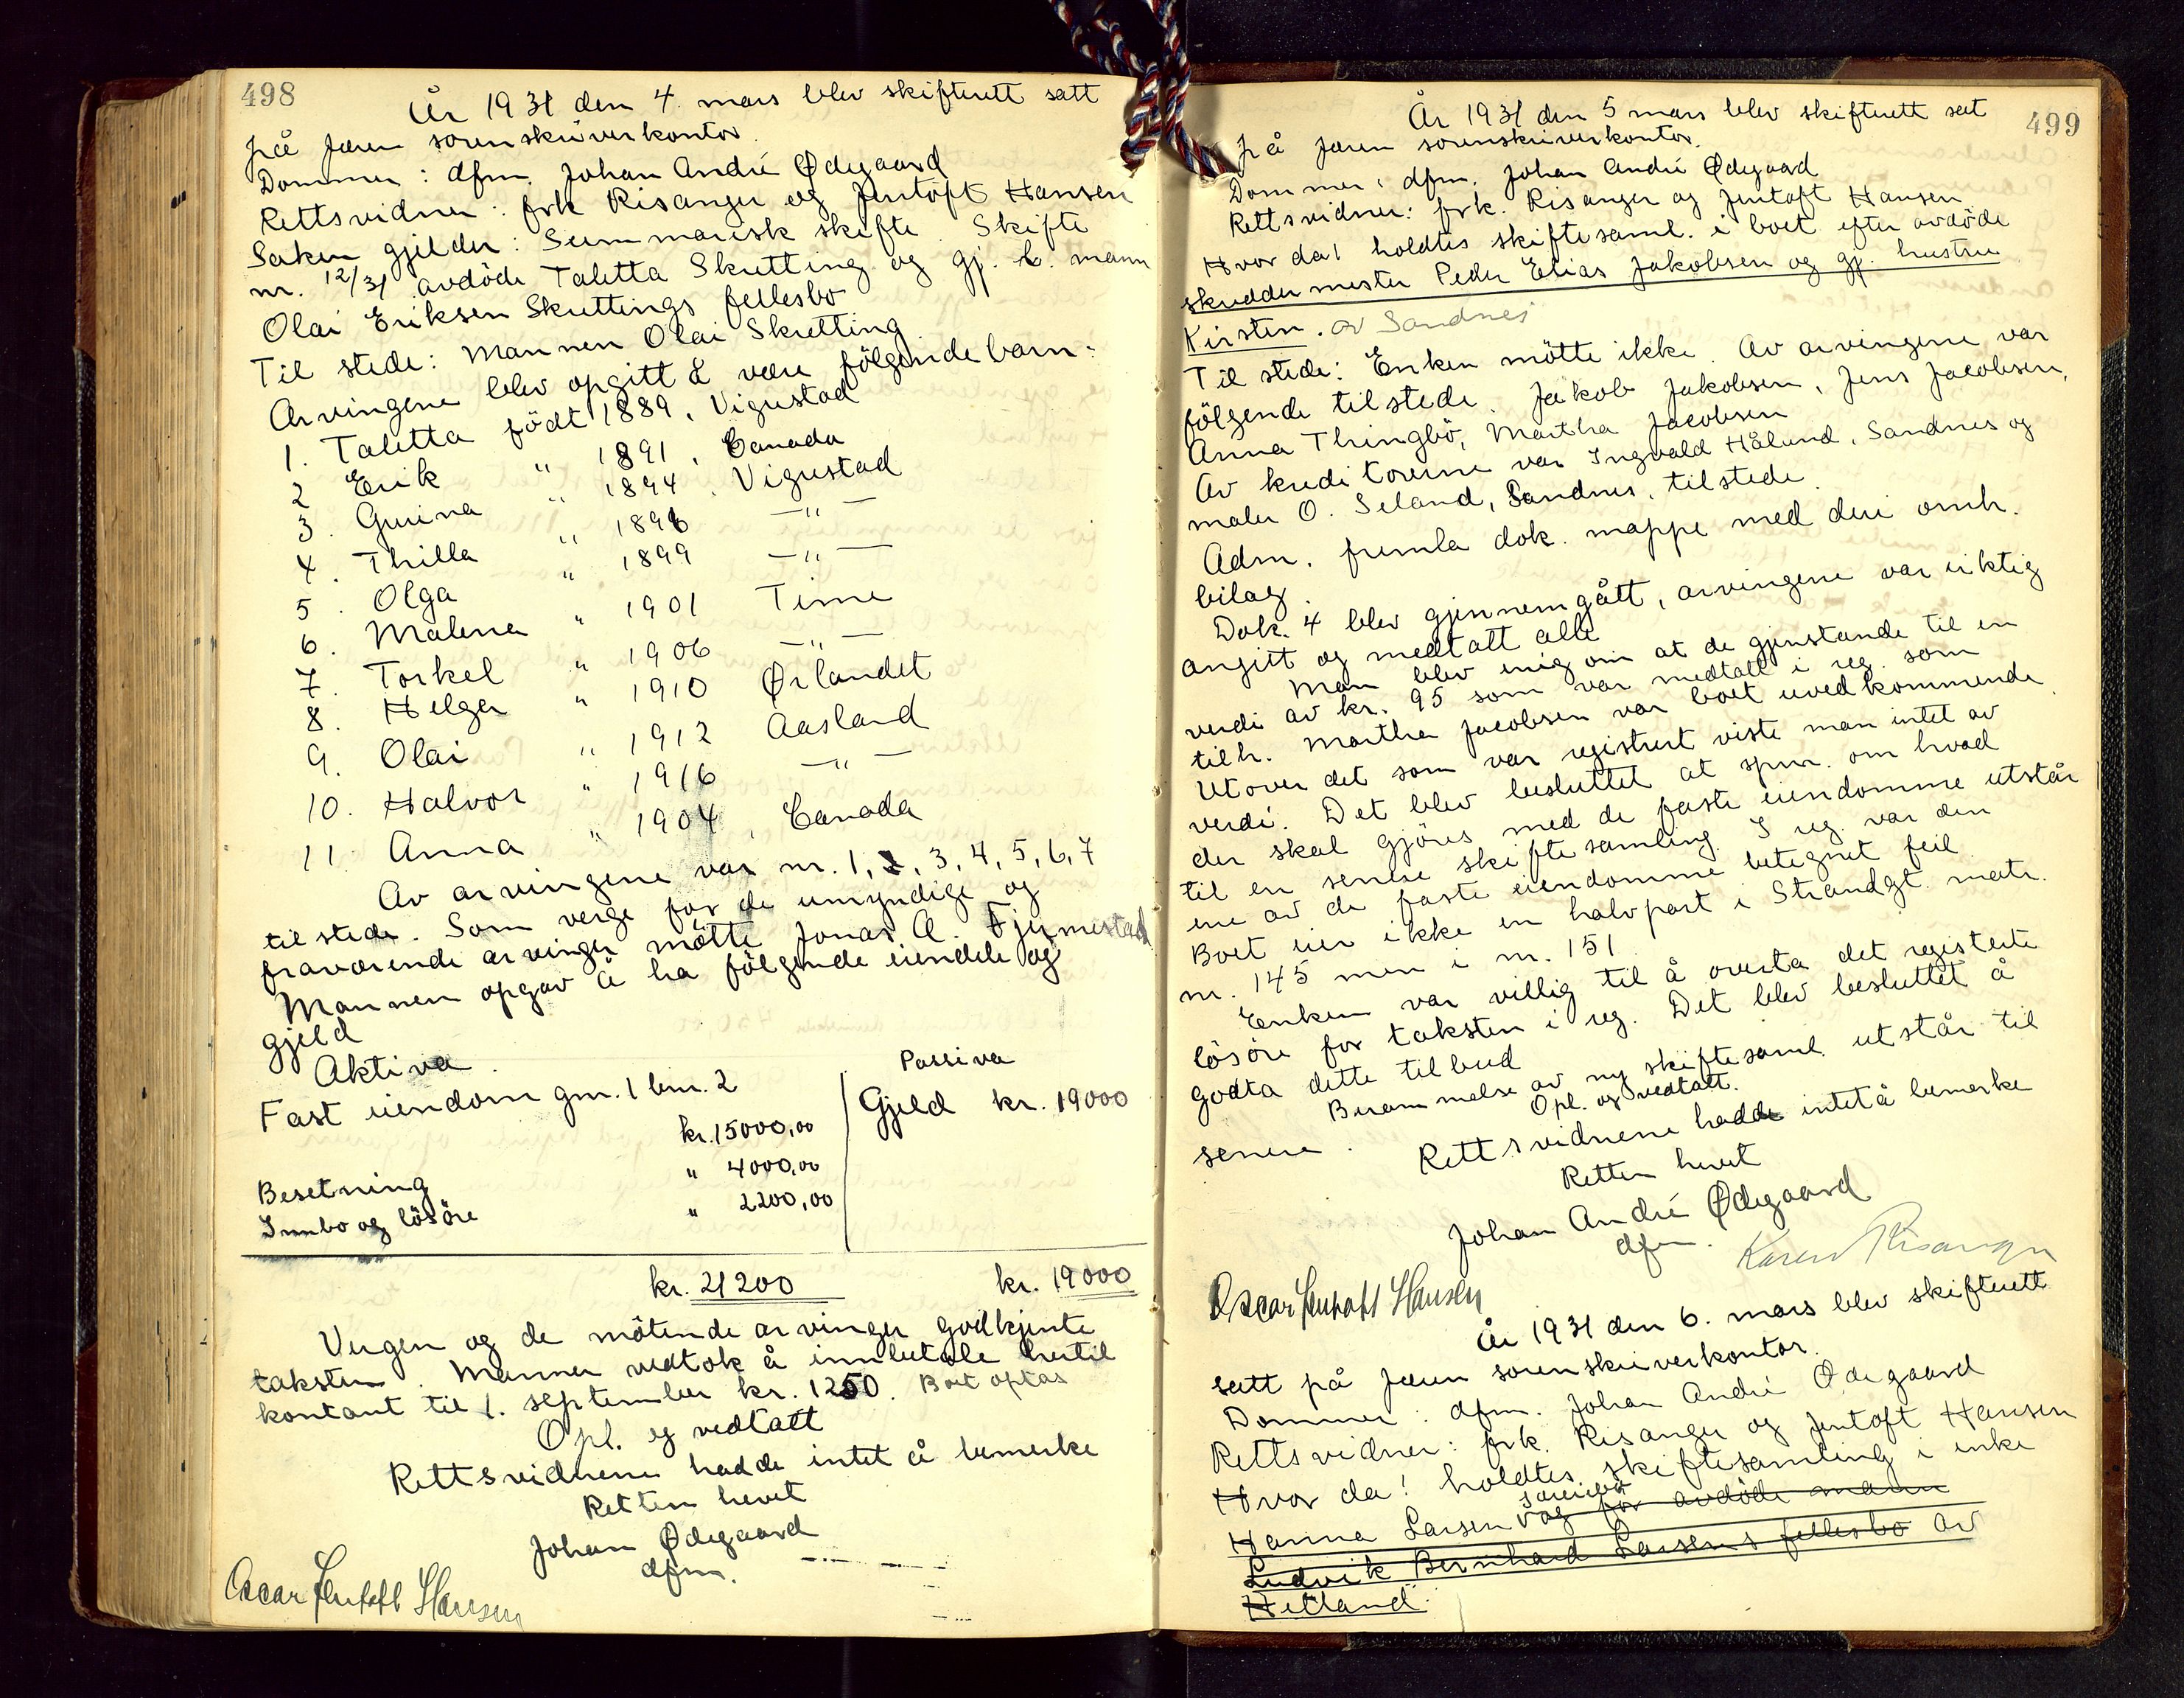 498
År 1931 den 4. mars blev skifterett satt
på Jæren sorenskriverkontor.
Dommer: dfm. Johan André Ødegaard
Rettsvidner: frk Risanger og Jentoft Hansen
Saken gjelder: Summarisk skifte. Skifte
nr. 12/31 avdöde Taletta Skretting og gj. l. mann
Olai Eriksen Skrettings fellesbo
Til stede: Mannen Olai Skretting
Arvingene blev opgitt å være fölgende barn:
1. Taletta födt 1889, Vigrestad
2 Erik " 1891, Canada
3. Gurina " 1894, Vigrestad
4. Thilla " 1896 —"—
5. Olga " 1899 —"—
6. Malena " 1901 Time
7. Torkel " 1906 —"—
8. Helga " 1910 Ørlandet
9. Olai " 1912 Aasland
10. Halvor " 1916 —"—
11 Anna " 1904, Canada
Av arvingene var nr. 1, 2, 3, 4, 5, 6, 7
tilstede. Som verge for de umyndige og
fraværende arvinger mötte Jonas A. Fjermestad
Mannen opgav å ha fölgende eiendele og
gjeld
Aktiva. Passiva
Fast eiendom gnr. 1 bnr. 2
kr. 15000,00 Gjeld kr. 19000
Besetning " 4000,00
Innbo og lösöre " 2200,00
kr. 21200 kr. 19000
Vergen og de mötende arvinger godkjente
taksten. Mannen vedtok å innbetale hertil
kontant til 1. september kr. 1250. Boet optas
Opl. og vedtatt
Rettsvidnene hadde intet å bemerke
Retten hevet
Johan Ødegaard
dfm.
Oscar Jentoft Hansen
499
År 1931 den 5 mars blev skifterett satt
på Jæren sorenskriverkontor.
Dommer: dfm. Johan André Ødegaard
Rettsvidner: frk. Risanger og Jentoft Hansen.
Hvor da! holdtes skiftesaml. i boet efter avdöde
skreddermester Peder Elias Jakobsen og gj. hustru
Kirsten. av Sandnes
Til stede: Enken mötte ikke. Av arvingene var
fölgende tilstede. Jakob Jakobsen, Jens Jacobsen,
Anna Thingbö, Martha Jacobsen
Av kreditorerne var Ingvald Håland, Sandnes og
maler O. Seland, Sandnes, tilstede.
Adm. fremla dok. mappe med deri omh.
bilag.
Dok. 4 blev gjennemgått, arvingene var riktig
angitt og medtatt alle
Man blev enig om at de gjenstande til en
verdi av kr. 95 som var medtatt i reg. som
tilh. Martha Jacobsen var boet uvedkommende.
Utover det som var registrert viste man intet av
verdi. Det blev besluttet at spm. om hvad
der skal gjöres med de faste eiendomme utstår
til en senere skiftesamling. I reg. var den
ene av de faste eiendomme betegnet feil
Boet eier ikke en halvpart i Strandgt. matr.
nr. 145 men i nr. 151
Enken var villig til å overta det registerte
lösöre for taksten i reg. Det blev besluttet å
godta dette tilbud
Berammelse av ny skiftesaml. utstår til
senere. Opl. og vedtatt.
Rettsvidnene hadde intet å bemerke
Retten hevet
Johan André Ødegaard
dfm.
Karen Risanger
Oscar Jentoft Hansen
År 1931 den 6. mars blev skifterett
satt på Jæren sorenskriverkontor.
Dommer: dfm. Johan André Ødegaard
Rettsvidner: frk. Risanger og Jentoft Hansen
Hvor da! holdtes skiftesamling i enke
Hanna Larsen særeiebo og för avdöde mann
Ludvik Bernhard Larsens fellesbo av
Hetland.